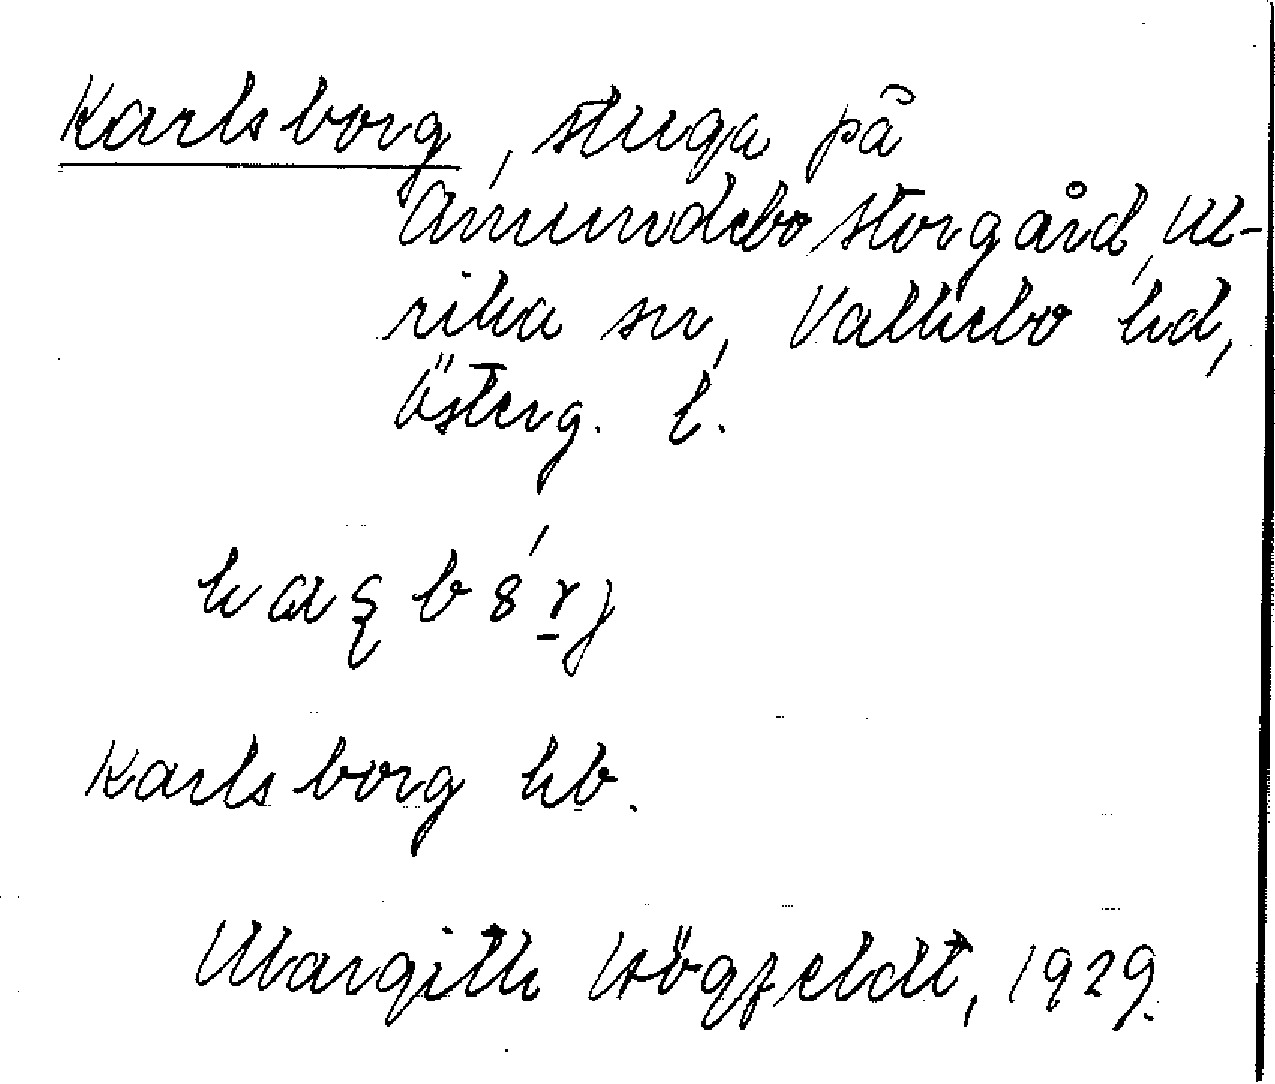 Karlsborg, stuga på
Åmundebo storgård, Ul-
rika sn, Valkebo hd,
Österg. l.
Karlsborg hb.
Margith Högfeldt, 1929.